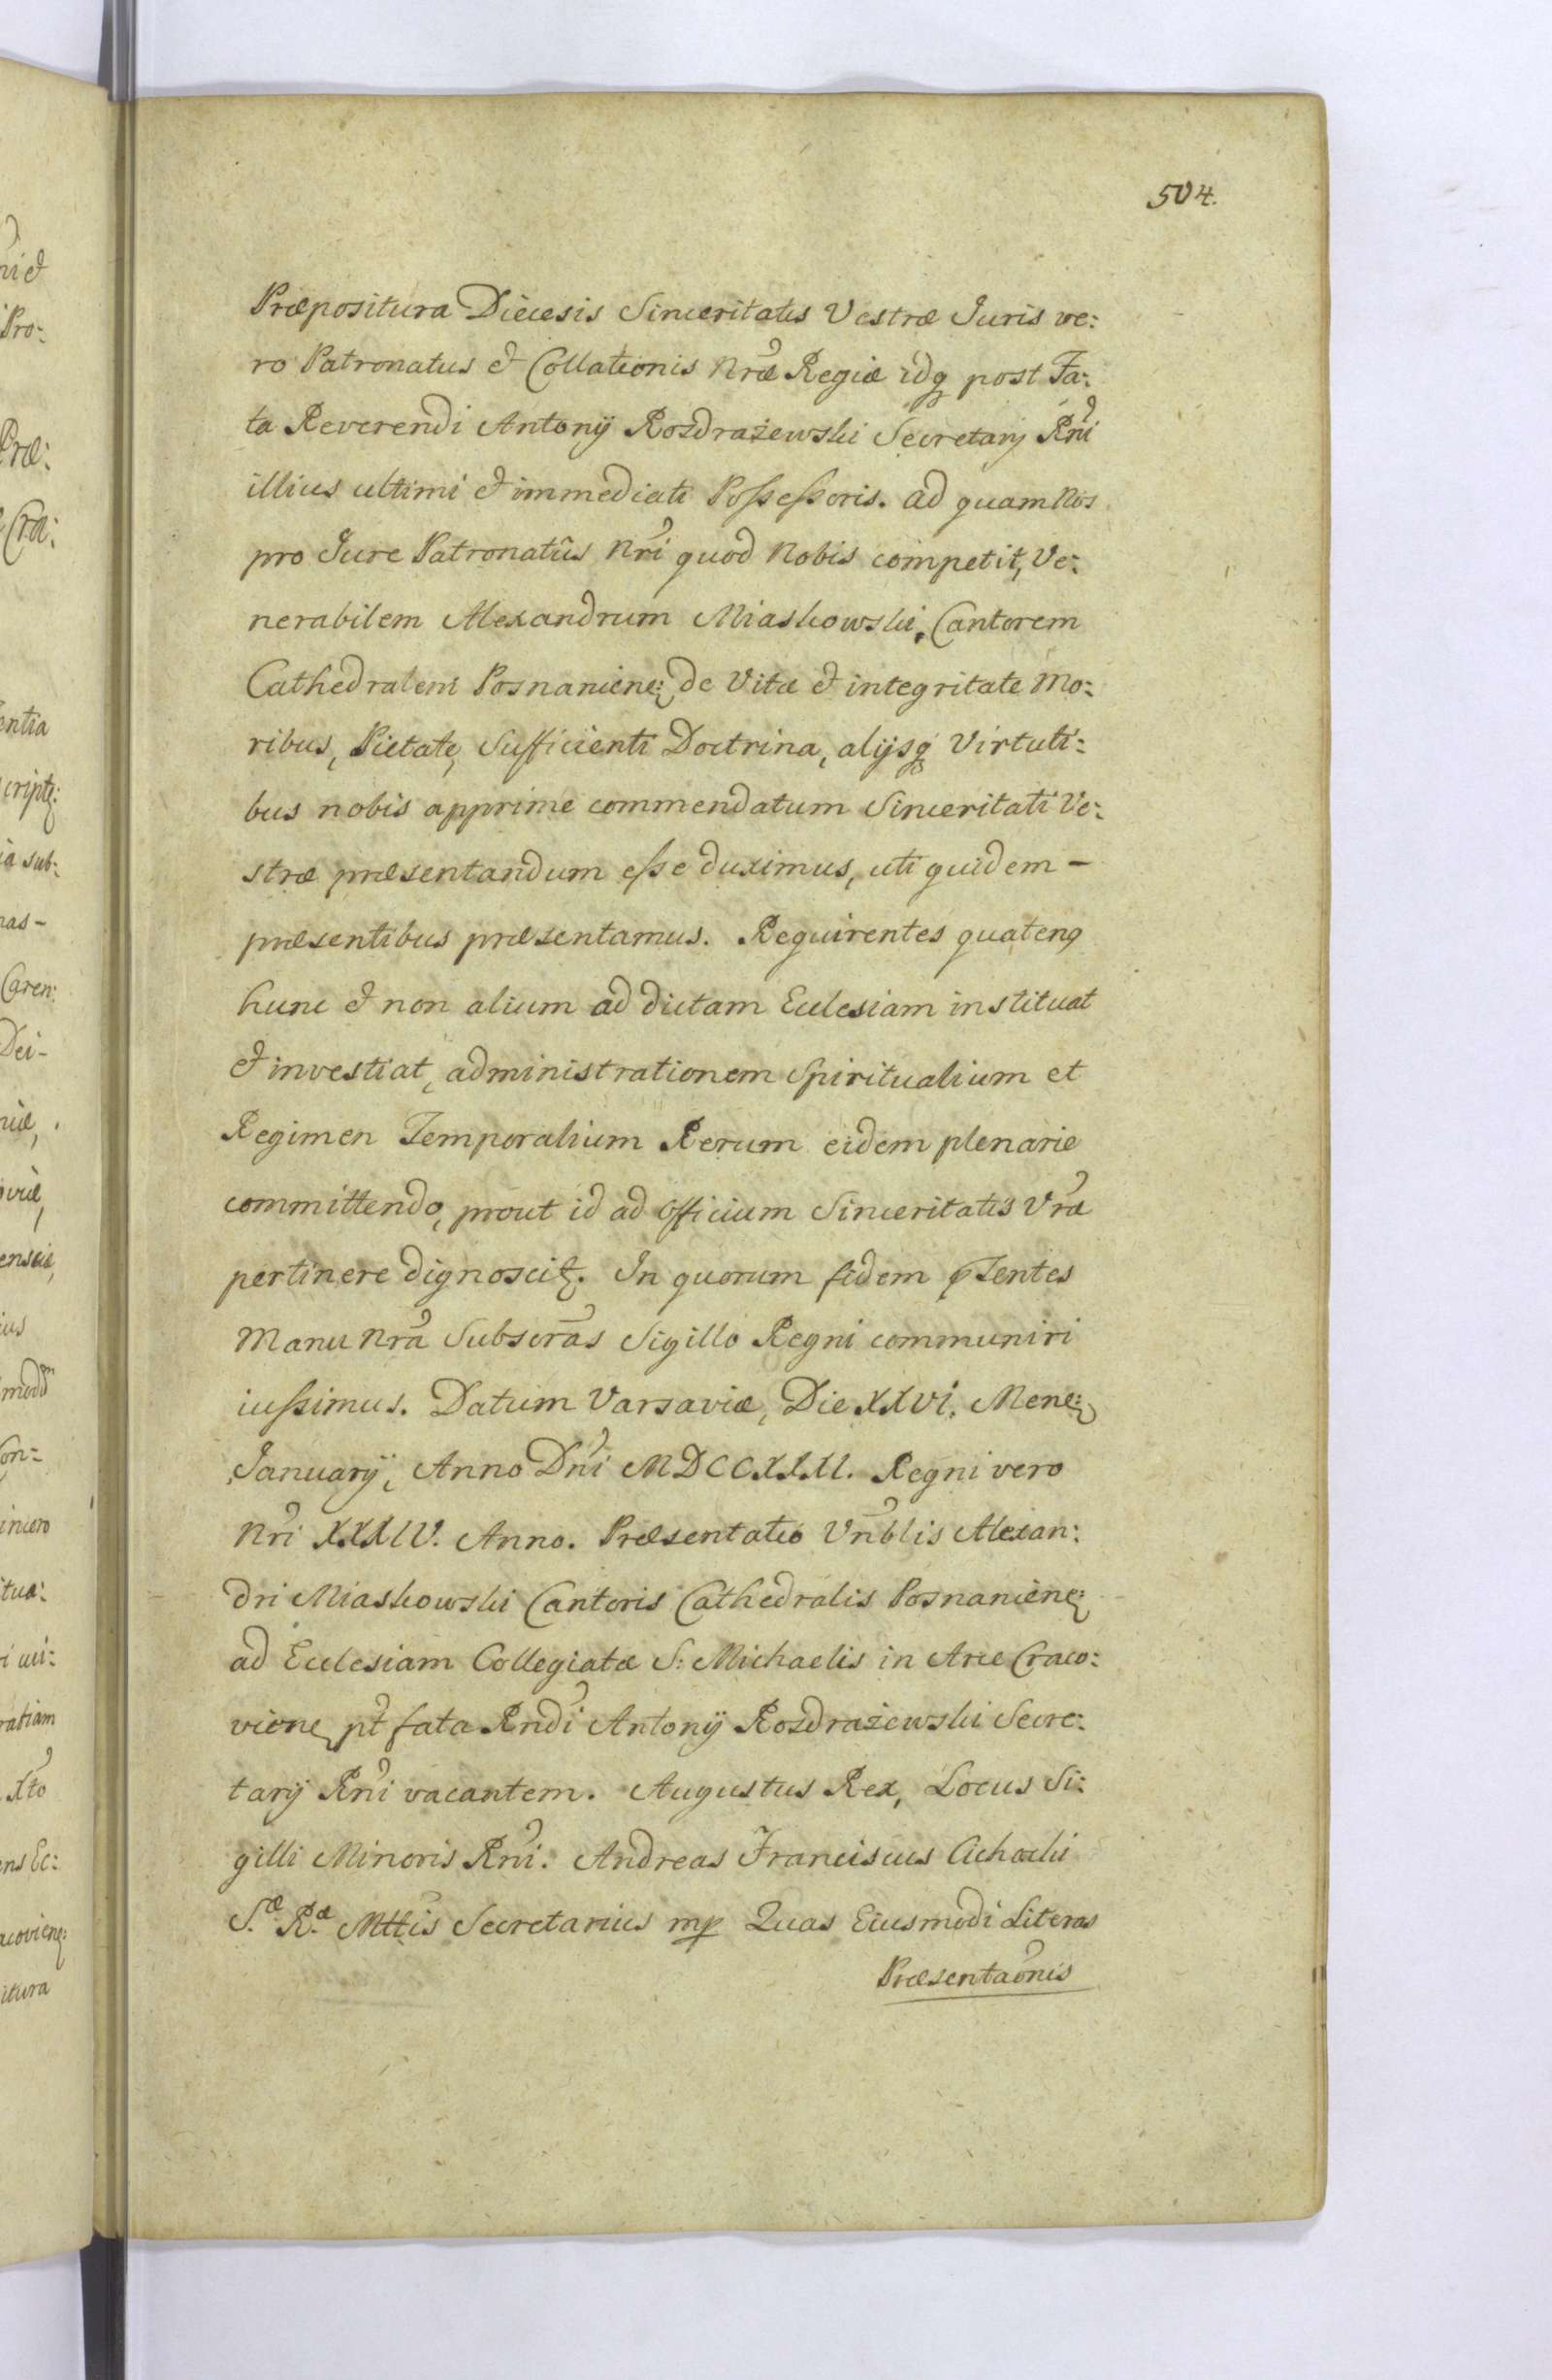 504.
Præpositura Diecesis Sinceritatis Vestræ Juris ve:
ro Patronatus & Collationis Nræ Regiæ idq post Fa:
ta Reverendi Antonij Rozdrażewski Secretarij Rni
illius ultimi & immediati Possessoris. ad quam Nos
pro Jure Patronatûs Nri quod Nobis competit, Ve:
nerabilem Alexandrum Miaskowski, Cantorem
Cathedralem Posnaniens: de Vitæ & integritate Mo:
ribus, Pietate, Sufficienti Doctrina, alijsq Virtuti:
bus nobis apprime commendatum Sinceritati Ve:
stræ præsentandum esse duximus, uti quidem –
præsentibus præsentamus. Requirentes quatenq
hunc & non alium ad dictam Ecclesiam instituat
& investiat, administrationem Spiritualium et
Regimen Temporalium Rerum eidem plenarie
committendo, prout id ad Officium Sinceritatis Vræ
pertinere dignoscit. In quorum fidem pntes
Manu Nra Subscras Sigillo Regni communiri
iussimus. Datum Varsaviæ, Die XXVI. Mens:
Januarij, Anno Dni MDCCXXXI. Regni vero
Nri XXXIV. Anno. Præsentatio Vnblis Alexan:
dri Miaskowski Cantoris Cathedralis Posnaniens:
ad Ecclesiam Collegiatæ S: Michaelis in Arce Craco:
viens pt fata Rndi Antonij Rozdrażewski Secre:
tarij Rni vacantem. Augustus Rex, Locus Si:
gilli Minoris Rni. Andreas Franciscus Cichocki
S.æ R.æ Mttis Secretarius mp Quas Eiusmodi Literas
Præsentaonis
ni &
Pro:
Præ:
Cra:
entia
ia sub:
nas –
Caren:
Dei –
niæ,
oviæ,
ensiæ,
ius
modm
on:
incero
itua:
ratiam
Xto
ens Ec:
acoviens:
itura